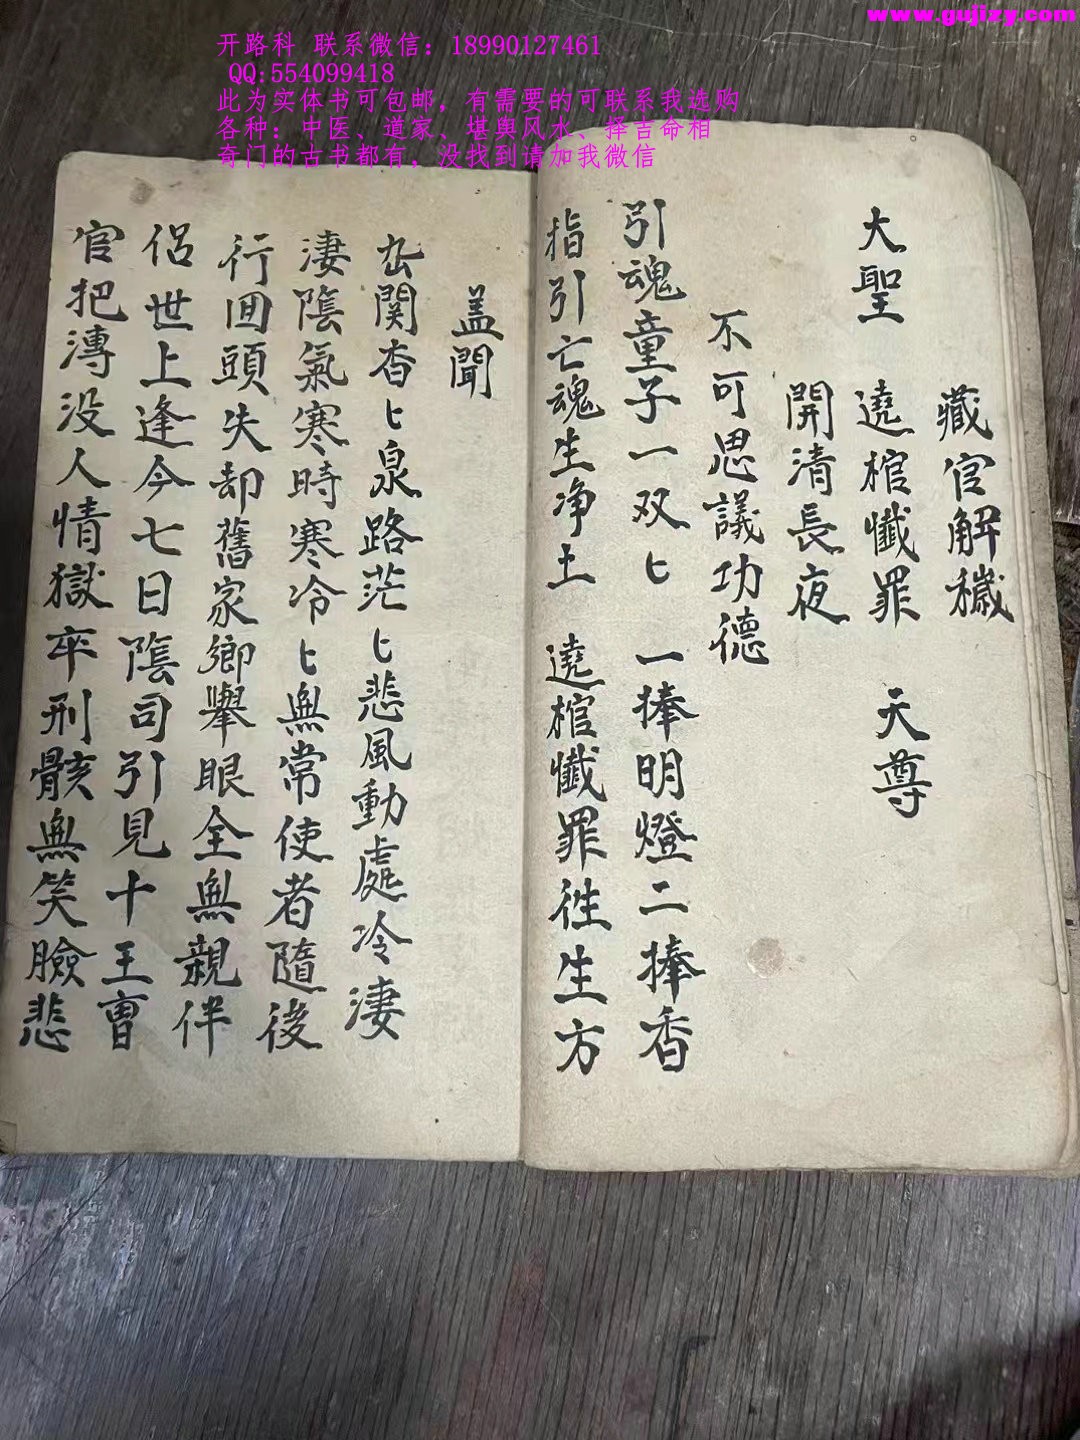 www.gujizy.com
开路科 联系微信：18990127461
QQ:554099418
此为实体书可包邮，有需要的可联系我选购
各种：中医、道家、堪舆风水、择吉命相
奇门的古书都有，没找到请加我微信
藏官解穢
大聖 遶棺懺罪 天尊
開清長夜
不可思議功德
引魂童子一双匕 一捧明燈二捧香
指引亡魂生净土 遶棺懺罪徃生方
盖聞
関杳匕泉路茫匕悲風動處冷淒
淒陰氣寒時寒冷匕無常使者隨後
行囬頭失却舊家鄉舉眼全無親伴
侣世上逢今七日陰司引見十王曺
官把漙没人情獄卒刑骸無笑臉悲